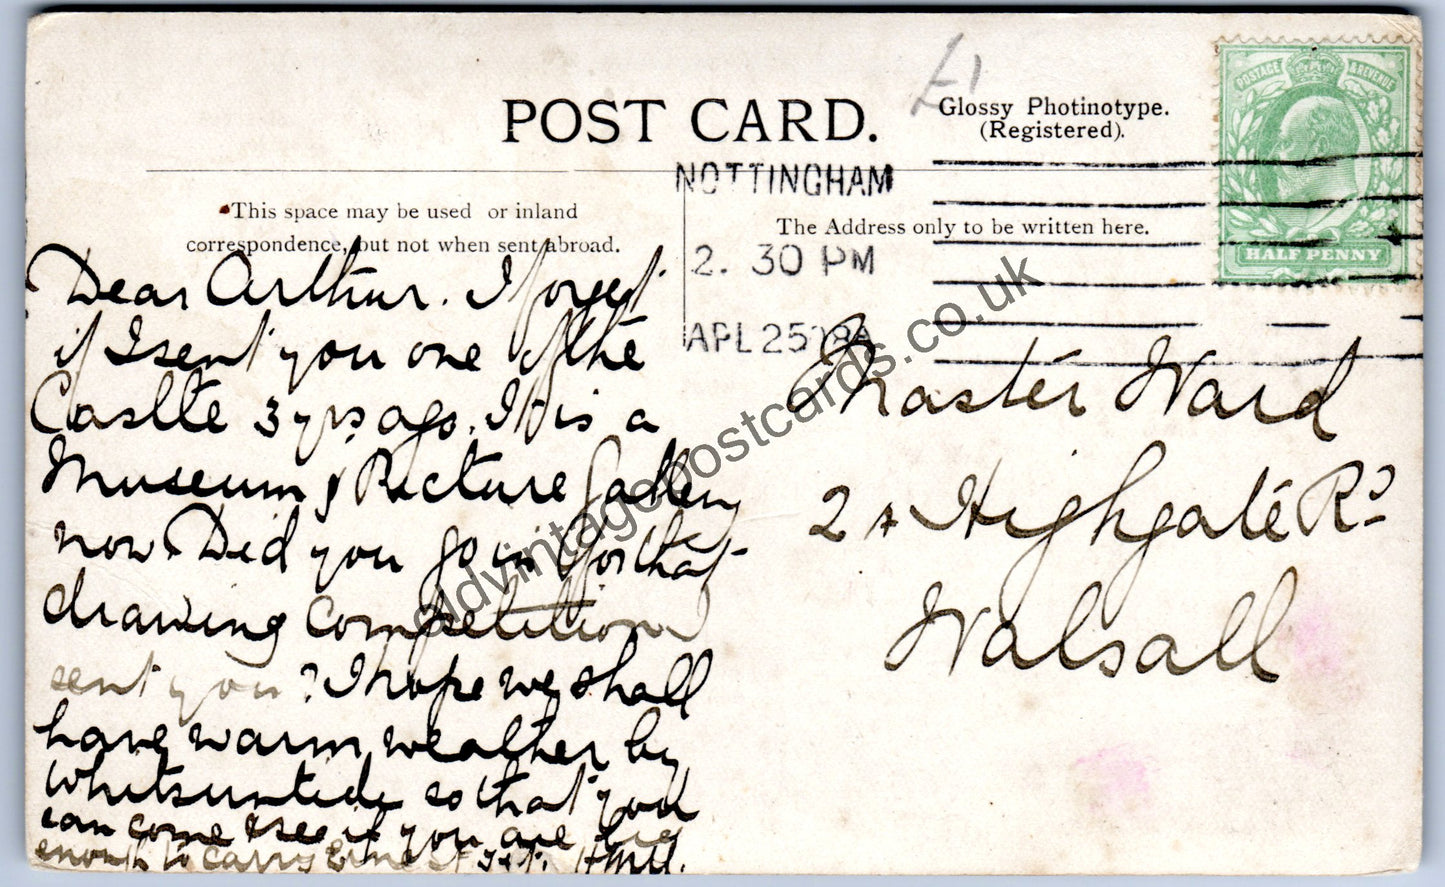 £1
POSTAGE & REVENUE
POST CARD.
Glossy Photinotype.
(Registered).
HALF PENNY
NOTTINGHAM
2. 30 PM
APL 25 08
This space may be used or inland
correspondence, but not when sent abroad.
The Address only to be written here.
Dear Arthur. I forget
if I sent you one of the
Castle 3 yrs ago. It is a
Museum & Picture Gallery
now. Did you go in for that
drawing competition
sent you? I hope we shall
have warm weather by
Whitsuntide so that you
can come & see if you are big
enough to carry Ernest
Master Ward
24 Highgate Rd
Walsall
oldvintagepostcards.co.uk